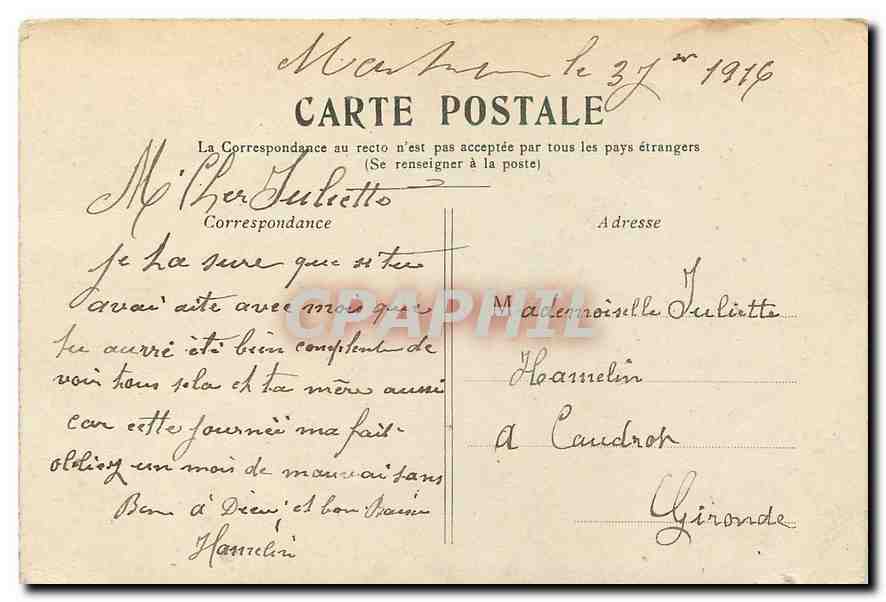 le 3 7er 1916
CARTE POSTALE
La Correspondance au recto n'est pas acceptée par tous les pays étrangers
(Se renseigner à la poste)
M Cher Juliette
Correspondance
Adresse
je t'a sure que si tu
avai aite avec mois que
tu aurré été bien complent de
voir tous sela et ta mère aussi
car cette journéé ma fait
obliez un mois de mauvai sans
Bon à Dieu et bon Baisé
Hamelin
Mademoiselle Juliette
Hamelin
a Caudrot
Gironde
CPAPHIL